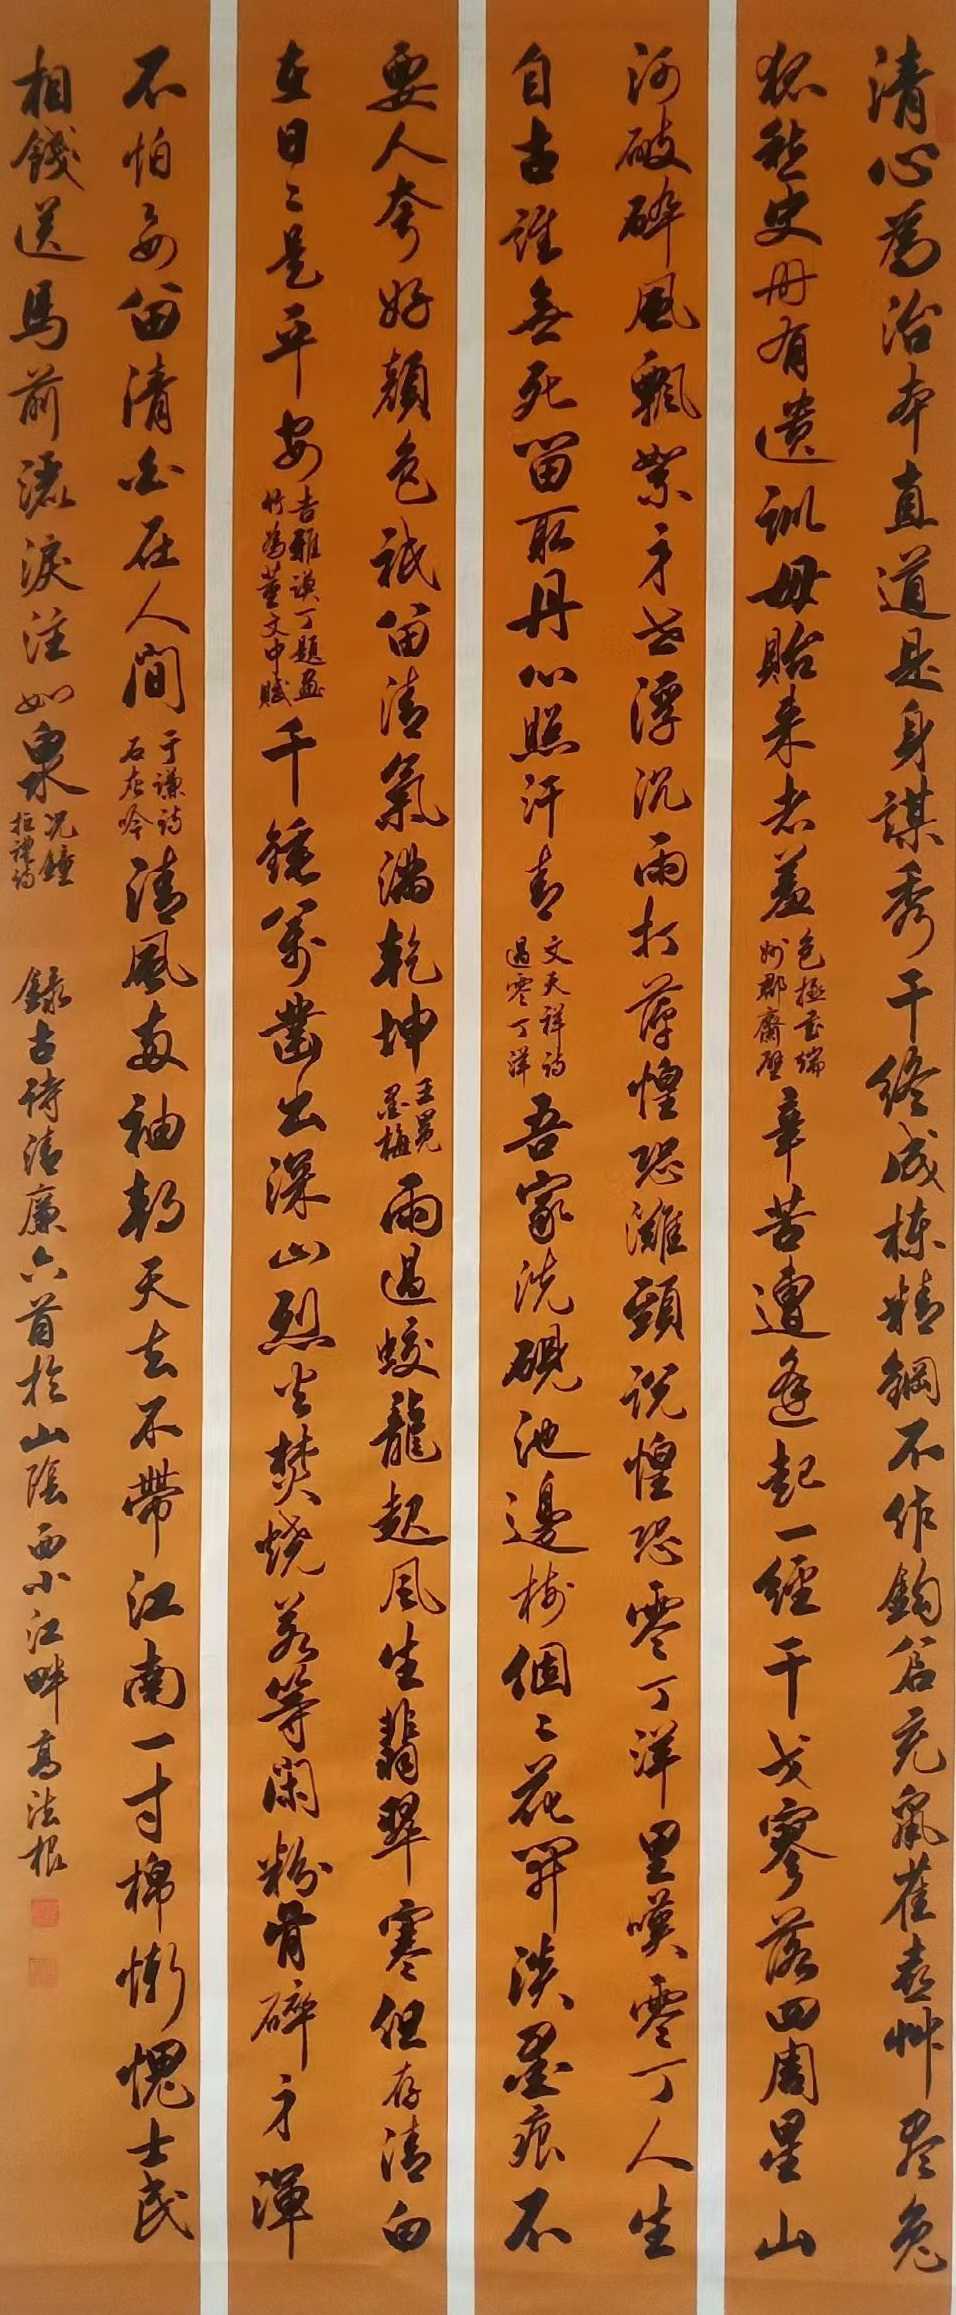 清心為治本直道是身謀秀干終成棟精鋼不作鉤倉充鼠雀喜艸盡兔
狐愁史冊有遺訓毋貽来者羞包拯書端州郡齋壁辛苦遭逢起一經干戈寥落四周星山
河破碎風飄絮身世浮沉雨打萍惶恐灘頭說惶恐零丁洋里嘆零丁人生
自古誰無死留取丹心照汗青文天祥詩過零丁洋吾家洗硯池邊樹個々花開淡墨痕不
要人夸好顏色祇留清氣滿乾坤王冕墨梅雨過蛟龍起風生翡翠寒但存清白
在日々是平安吉雅謨丁題畫竹為董文中賦千錘萬鑿出深山烈火焚燒若等閑粉骨碎身渾
不怕要留清白在人間于謙詩石灰吟清風兩袖朝天去不帶江南一寸棉慚愧士民
相餞送馬前灑淚注如泉况鐘拒禮詩錄古詩清廉六首於山陰西小江畔高法根